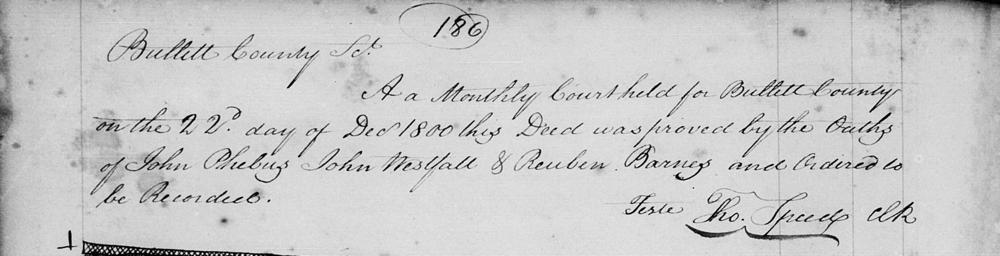 186
Bullitt County Sct.
A a Monthly Court held for Bullitt County
on the 22d. day of Decr 1800 this Deed was proved by the Oaths
of John Phebus John Westfall & Reuben Barnes and Ordered to
be Recorded.
Teste Tho. Speed Clk